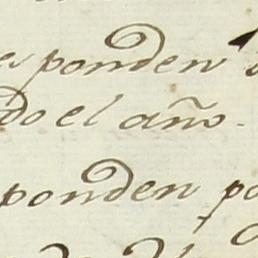 es ponden
do el año.
ponden po